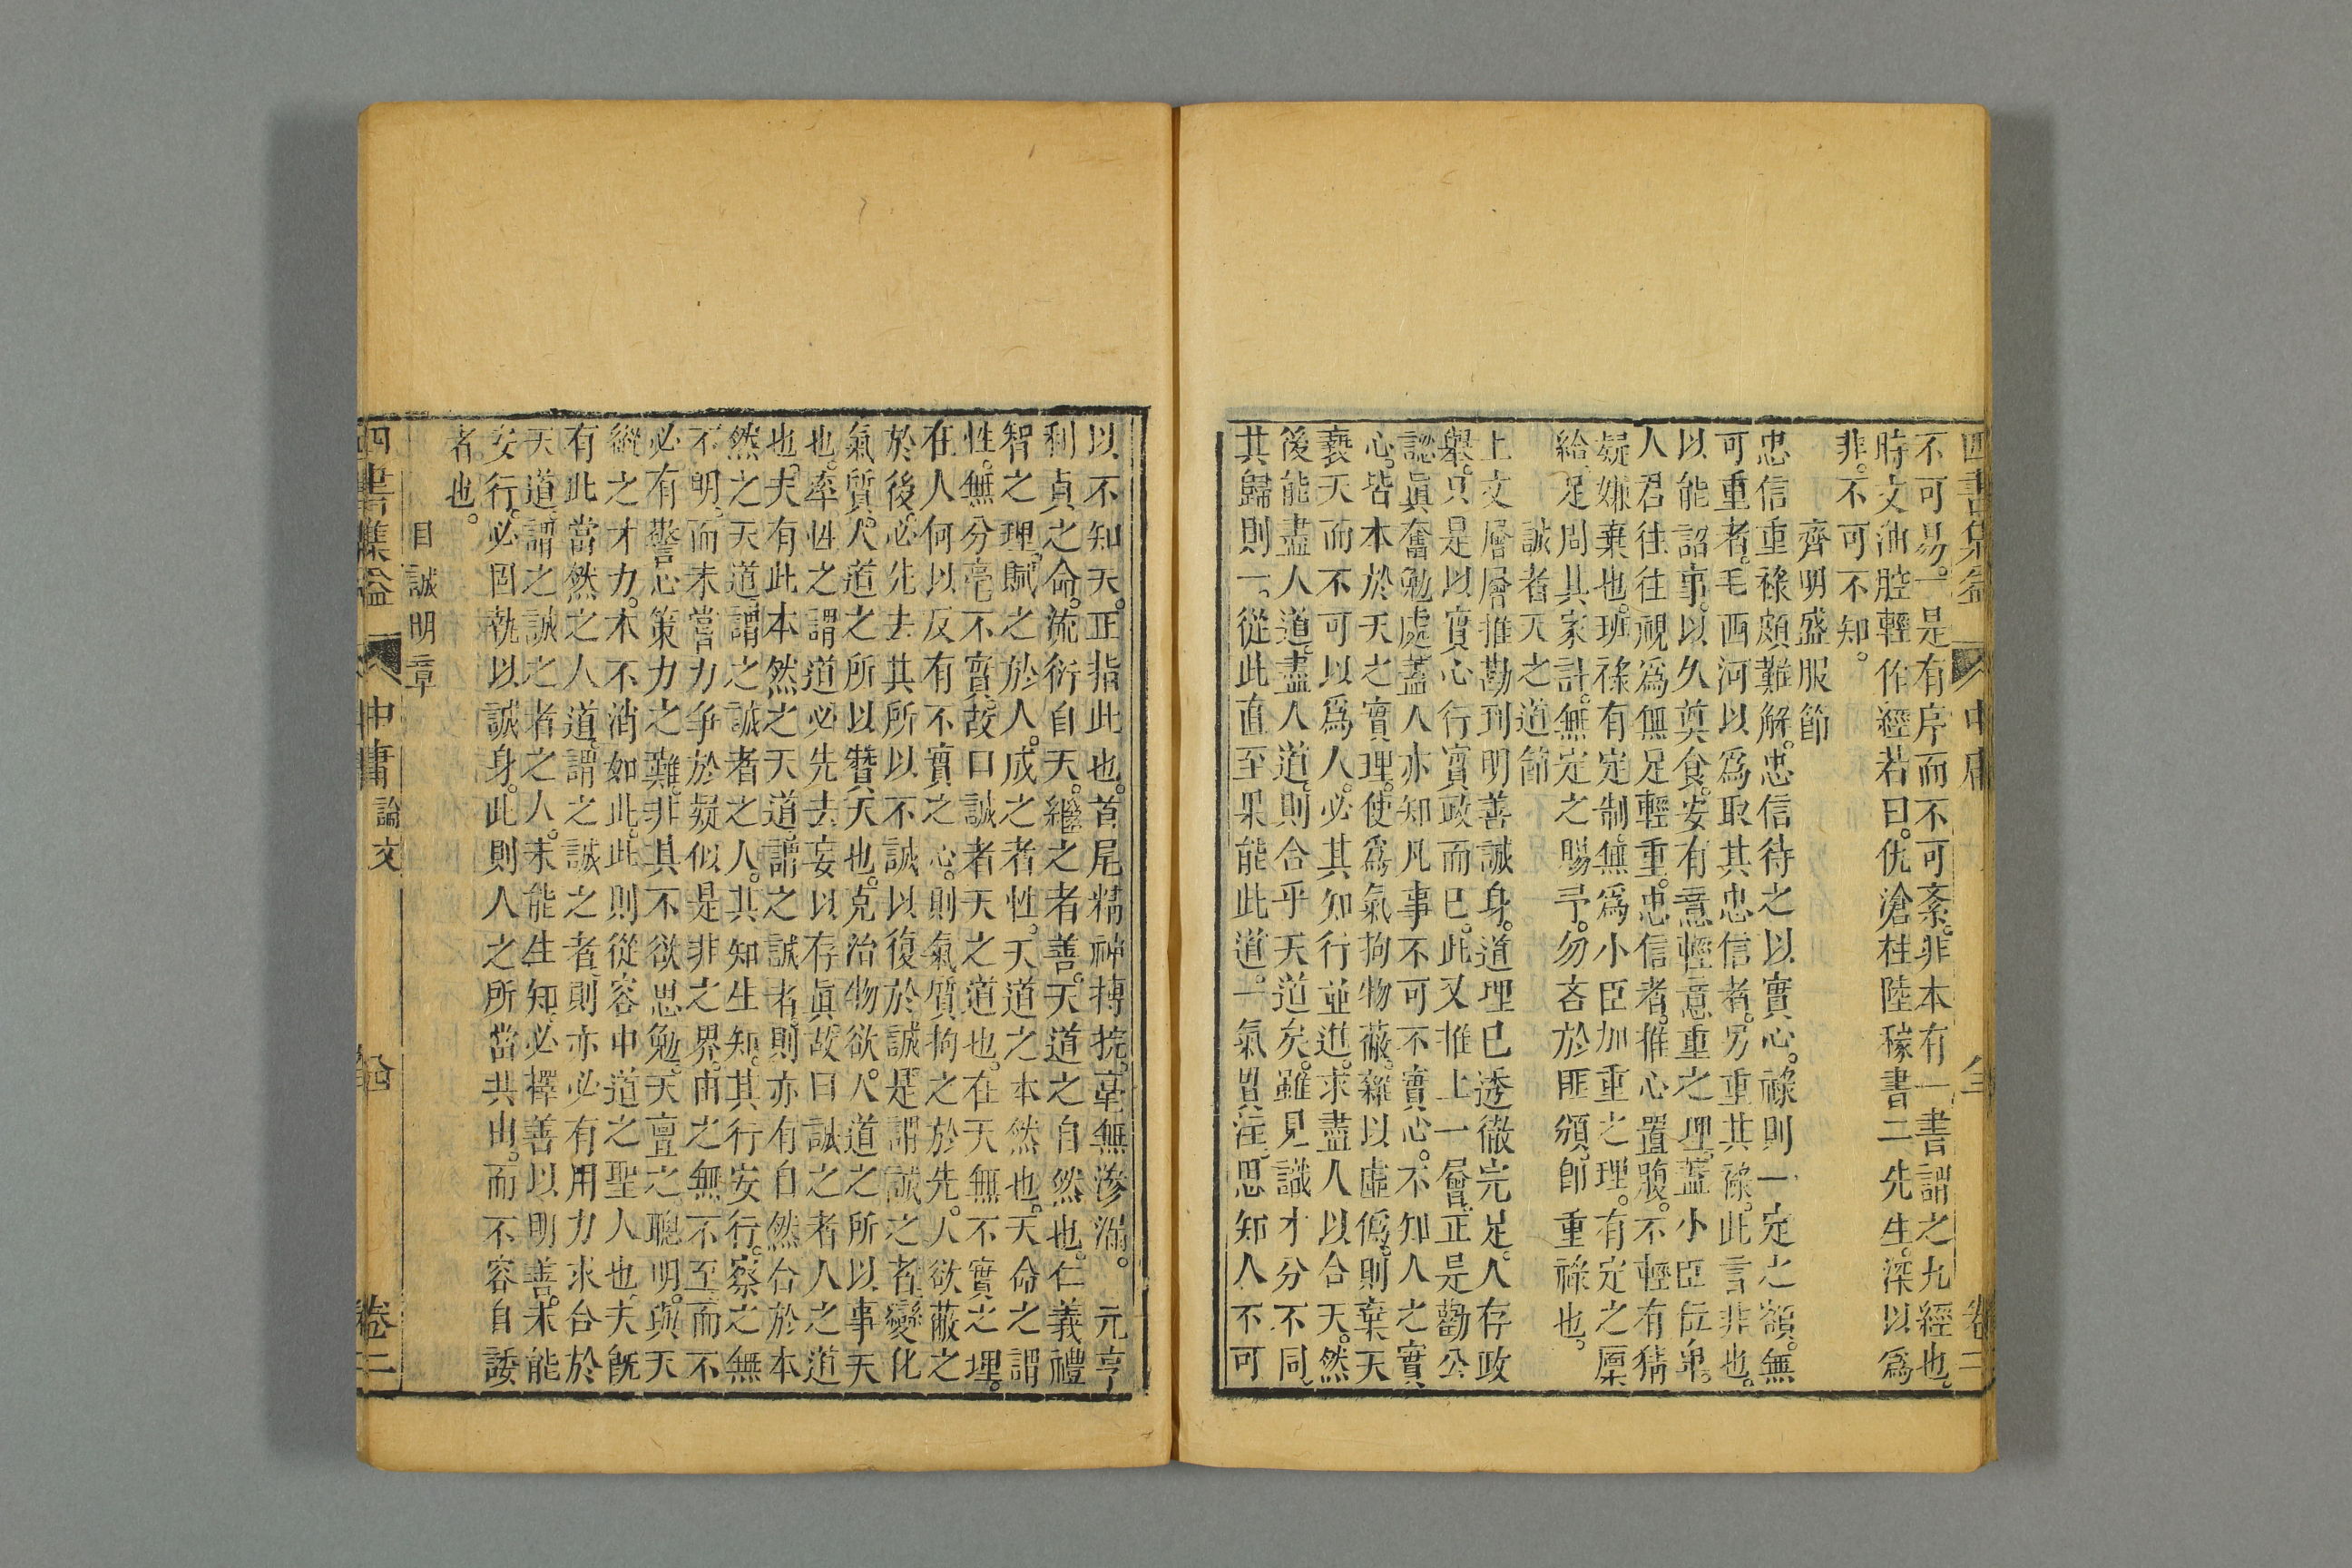 不可易。一是有序而不可紊。非本有一書謂之九經也。
時文油腔輕作經若曰。仇滄柱陸稼書二先生。深以爲
非。不可不知。
齊明盛服節
忠信重祿頗難解。忠信待之以實心。祿則一定之額。無
可重者。毛西河以爲取其忠信者。另重其祿。此言非也。
以能詔事。以久奠食。安有意輕意重之理。蓋小臣位卑。
人君往往視爲無足輕重。忠信者。推心置腹。不輕有猜
疑嫌棄也。班祿有定制。無爲小臣加重之理。有定之廩
給。足周其家計。無定之賜予。勿吝於匪頒。卽重祿也。
誠者天之道節
上文層層推勘到明善誠身。道理已透徹完足。人存政
舉。只是以實心行實政而已。此又推上一層。正是勸公
認眞奮勉處。蓋人亦知凡事不可不實心。不知人之實
心。皆本於天之實理。使爲氣拘物蔽。雜以虛僞。則棄天
褻天而不可以爲人。必其知行並進。求盡人以合天。然
後能盡人道。盡人道。則合乎天道矣。雖見識才分不同。
其歸則一。從此直至果能此道。一氣貫注。思知人不可
四書集益 中庸 卷二
以不知天。正指此也。首尾精神摶捖。毫無滲漏。 元亨
利貞之命。流衍自天。繼之者善。天道之自然也。仁義禮
智之理。賦之於人。成之者性。天道之本然也。天命之謂
性。無分毫不實。故曰誠者天之道也。在天無不實之理。
在人何以反有不實之心。則氣質拘之於先。人欲蔽之
於後。必先去其所以不誠以復於誠。是謂誠之者。變化
氣質。人道之所以贊天也。克治物欲。人道之所以事天
也。率性之謂道。必先去妄以存眞。故曰誠之者人之道
也。夫有此本然之天道。謂之誠者。則亦有自然合於本
然之天道。謂之誠者之人。其知生知。其行安行。察之無
不明。而未嘗力爭於疑似是非之界。由之無不至。而不
必有警心策力之難。非其不欲思勉。天亶之聰明。與天
縱之才力。本不消如此。此則從容中道之聖人也。夫旣
有此當然之人道。謂之誠之者。則亦必有用力求合於
天道。謂之誠之者之人。未能生知。必擇善以明善。未能
安行。必固執以誠身。此則人之所當共由。而不容自諉
者。也。
自誠明章
四書集益 中庸 論文 卷二